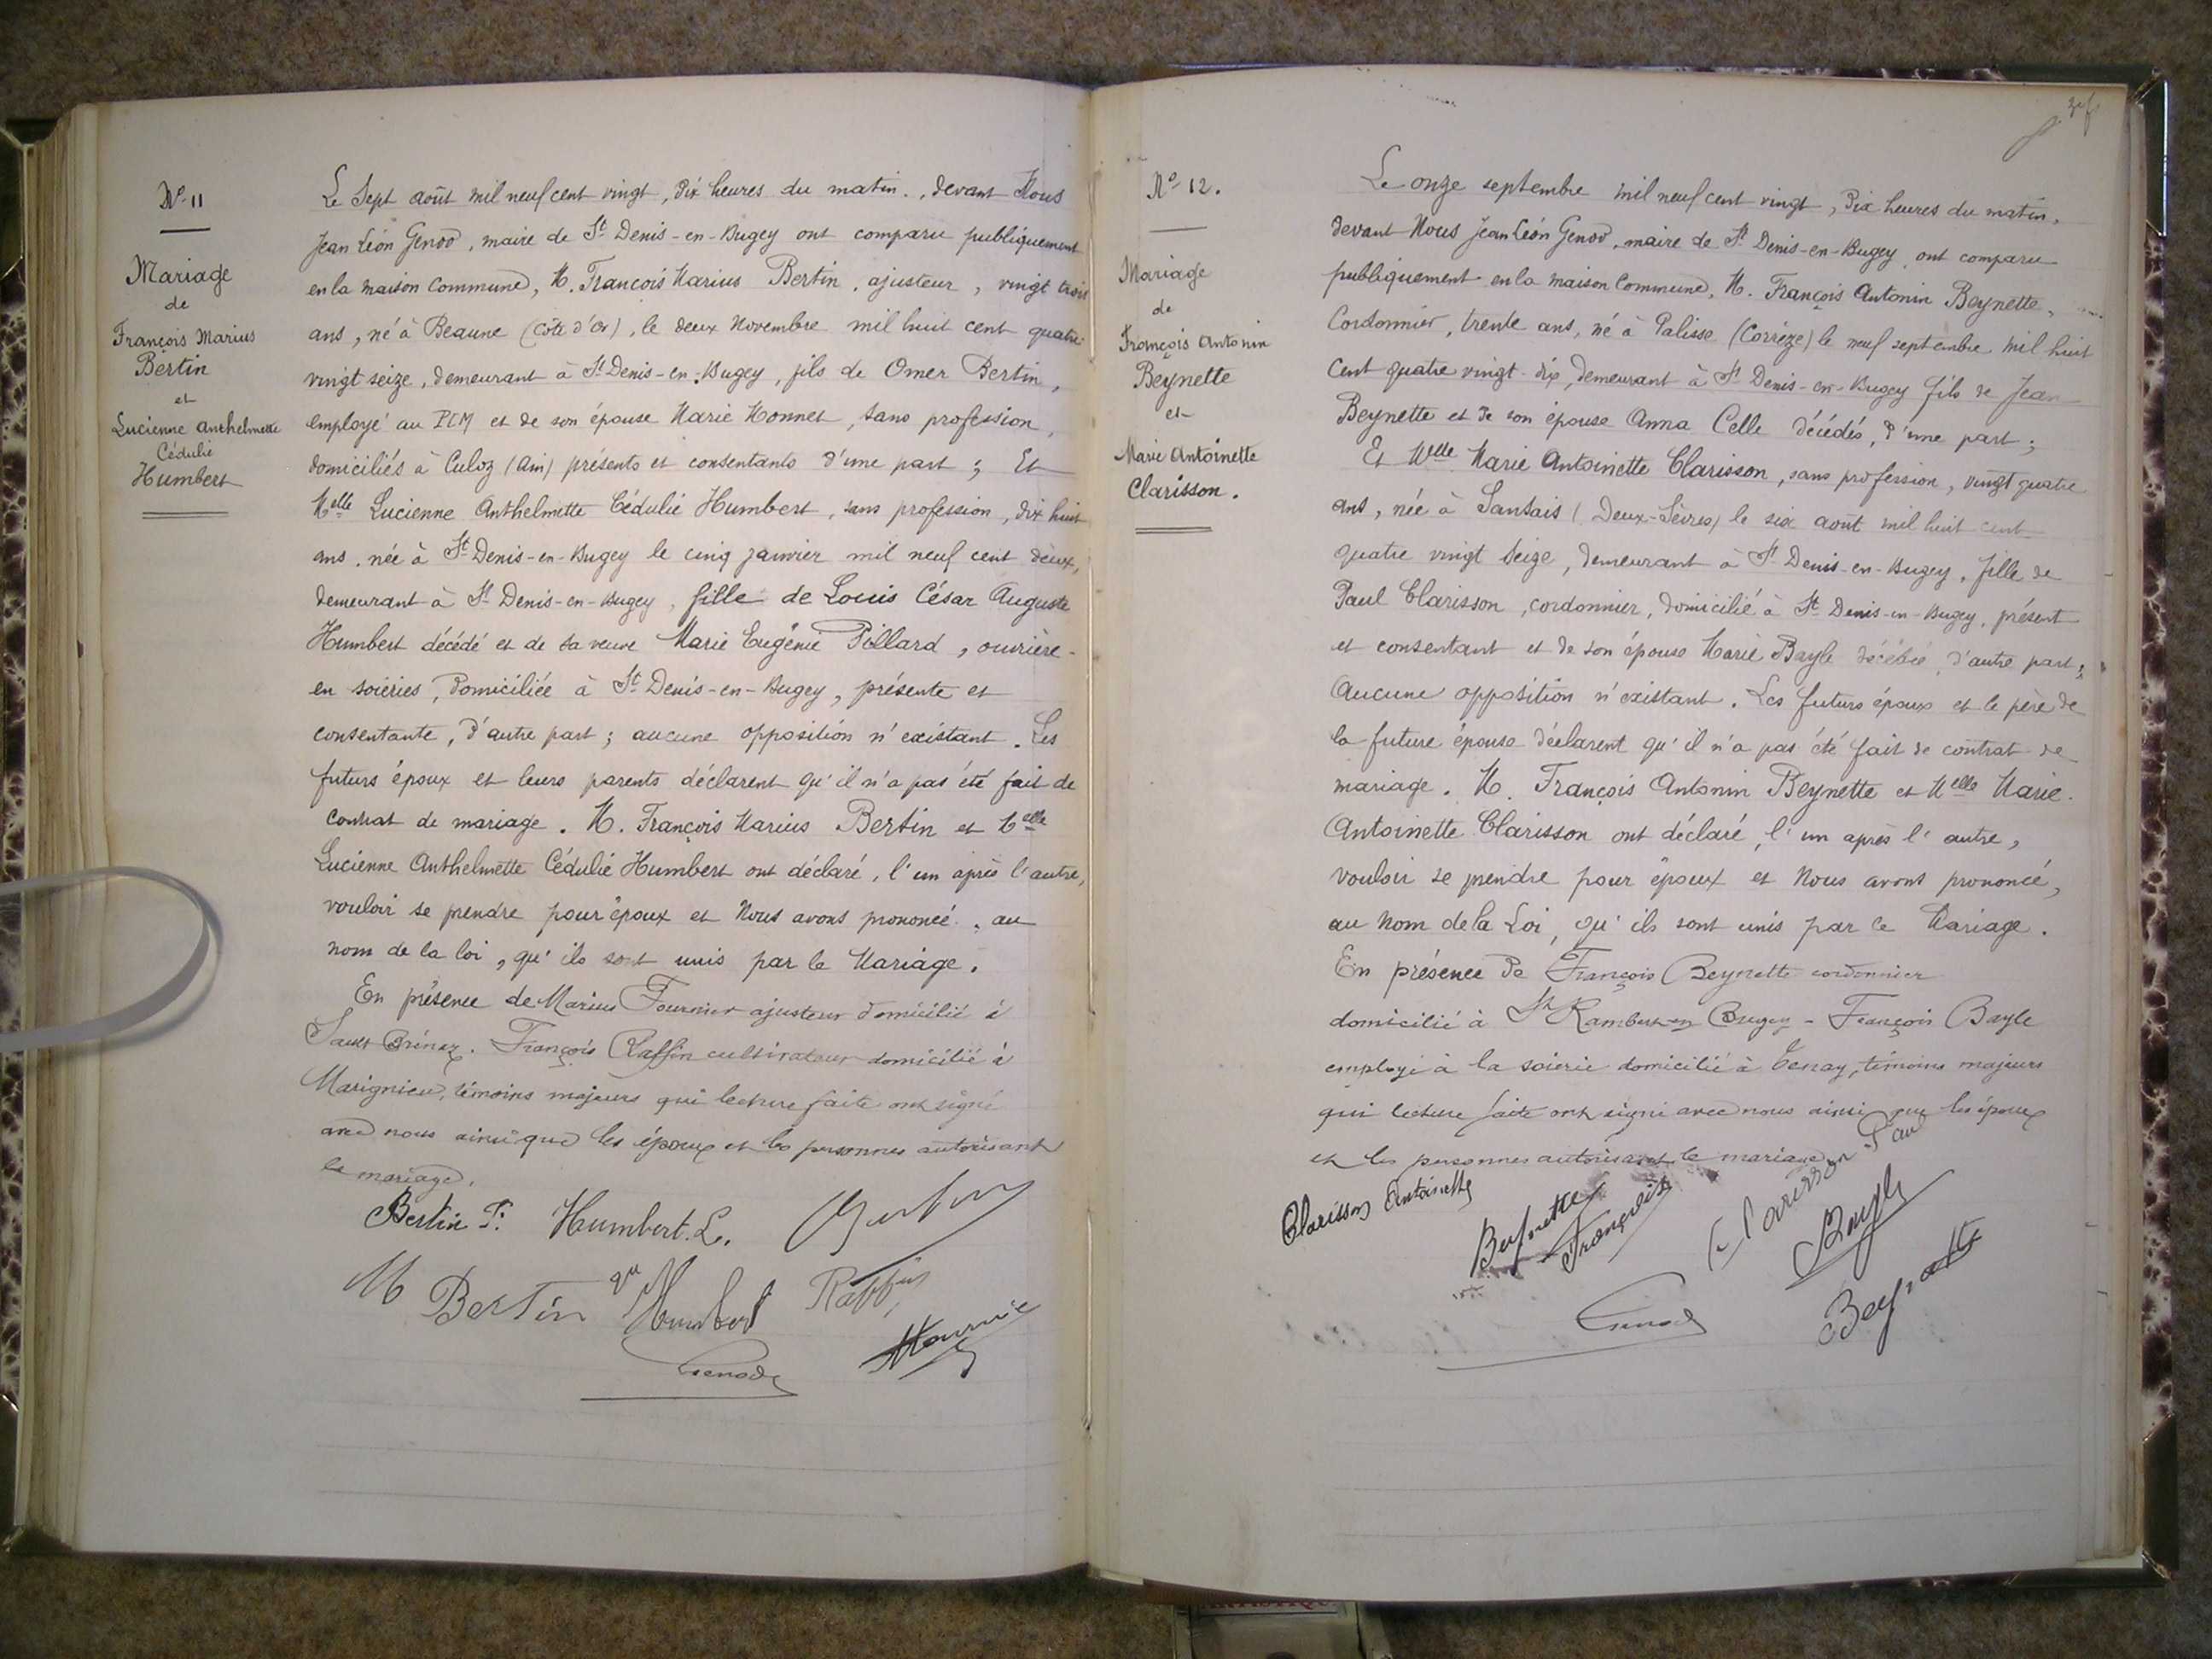 No 11
Mariage
de
François Marius
Bertin
et
Lucienne Anthelmette
Cédulie
Humbert
Le Sept août mil neuf cent vingt, dix heures du matin., devant Nous
Jean Léon Genod, maire de St Denis-en-Bugey ont comparu publiquement
en la maison commune, M. François Marius Bertin, ajusteur, vingt trois
ans, né à Beaune (Côte d'Or), le deux Novembre mil huit cent quatre
vingt seize, demeurant à St Denis-en-Bugey, fils de Omer Bertin,
employé au PLM et de son épouse Marie Monnet, sans profession,
domiciliés à Culoz (Ain) présents et consentants d'une part ; Et
Melle Lucienne Anthelmette Cédulie Humbert, sans profession, dix huit
ans, née à St Denis-en-Bugey le cinq janvier mil neuf cent deux,
demeurant à St Denis-en-Bugey, fille de Louis César Auguste
Humbert décédé et de sa veuve Marie Eugénie Pillard, ouvrière
en soieries, domiciliée à St Denis-en-Bugey, présente et
consentante, d'autre part ; aucune opposition n'existant. Les
futurs époux et leurs parents déclarent qu'il n'a pas été fait de
contrat de mariage. M. François Marius Bertin et Melle
Lucienne Anthelmette Cédulie Humbert ont déclaré, l'un après l'autre,
vouloir se prendre pour époux et Nous avons prononcé, au
nom de la loi, qu'ils sont unis par le Mariage.
En présence de Marius Fournier ajusteur domicilié à
Sault Brénaz. François Raffin cultivateur domicilié à
Marignieu, témoins majeurs qui lecture faite ont signé
avec nous ainsi que les époux et les personnes autorisant
le mariage.
Bertin F. Humbert. L.
M Bertin Humbert Raffin
Genod
No 12.
Mariage
de
François Antonin
Beynette
et
Marie Antoinette
Clarisson.
Le onze septembre mil neuf cent vingt, dix heures du matin,
devant Nous Jean Léon Genod, maire de St Denis-en-Bugey, ont comparu
publiquement en la maison commune, M. François Antonin Beynette,
Cordonnier, trente ans, né à Palisse (Corrèze) le neuf septembre mil huit
cent quatre vingt-dix, demeurant à St Denis-en-Bugey fils de Jean
Beynette et de son épouse Anna Celle décédés, d'une part ;
Et Melle Marie Antoinette Clarisson, sans profession, vingt quatre
ans, née à Sansais (Deux-Sèvres) le six août mil huit cent
quatre vingt seize, demeurant à St Denis-en-Bugey, fille de
Paul Clarisson, cordonnier, domicilié à St Denis-en-Bugey, présent
et consentant et de son épouse Marie Bayle décédée, d'autre part ;
Aucune opposition n'existant. Les futurs époux et le père de
la future épouse déclarent qu'il n'a pas été fait de contrat de
mariage. M. François Antonin Beynette et Melle Marie
Antoinette Clarisson ont déclaré, l'un après l'autre,
vouloir se prendre pour époux et Nous avons prononcé,
au Nom de la Loi, qu'ils sont unis par le Mariage.
En présence de François Beynette cordonnier
domicilié à St Rambert-en Bugey - François Bayle
employé à la soierie domicilié à Tenay, témoins majeurs
qui lecture faite ont signé avec nous ainsi que les époux
et les personnes autorisant le mariage
Clarisson Antoinette
Beynette François
Clarisson Paul
Bayle
Genod
Beynette